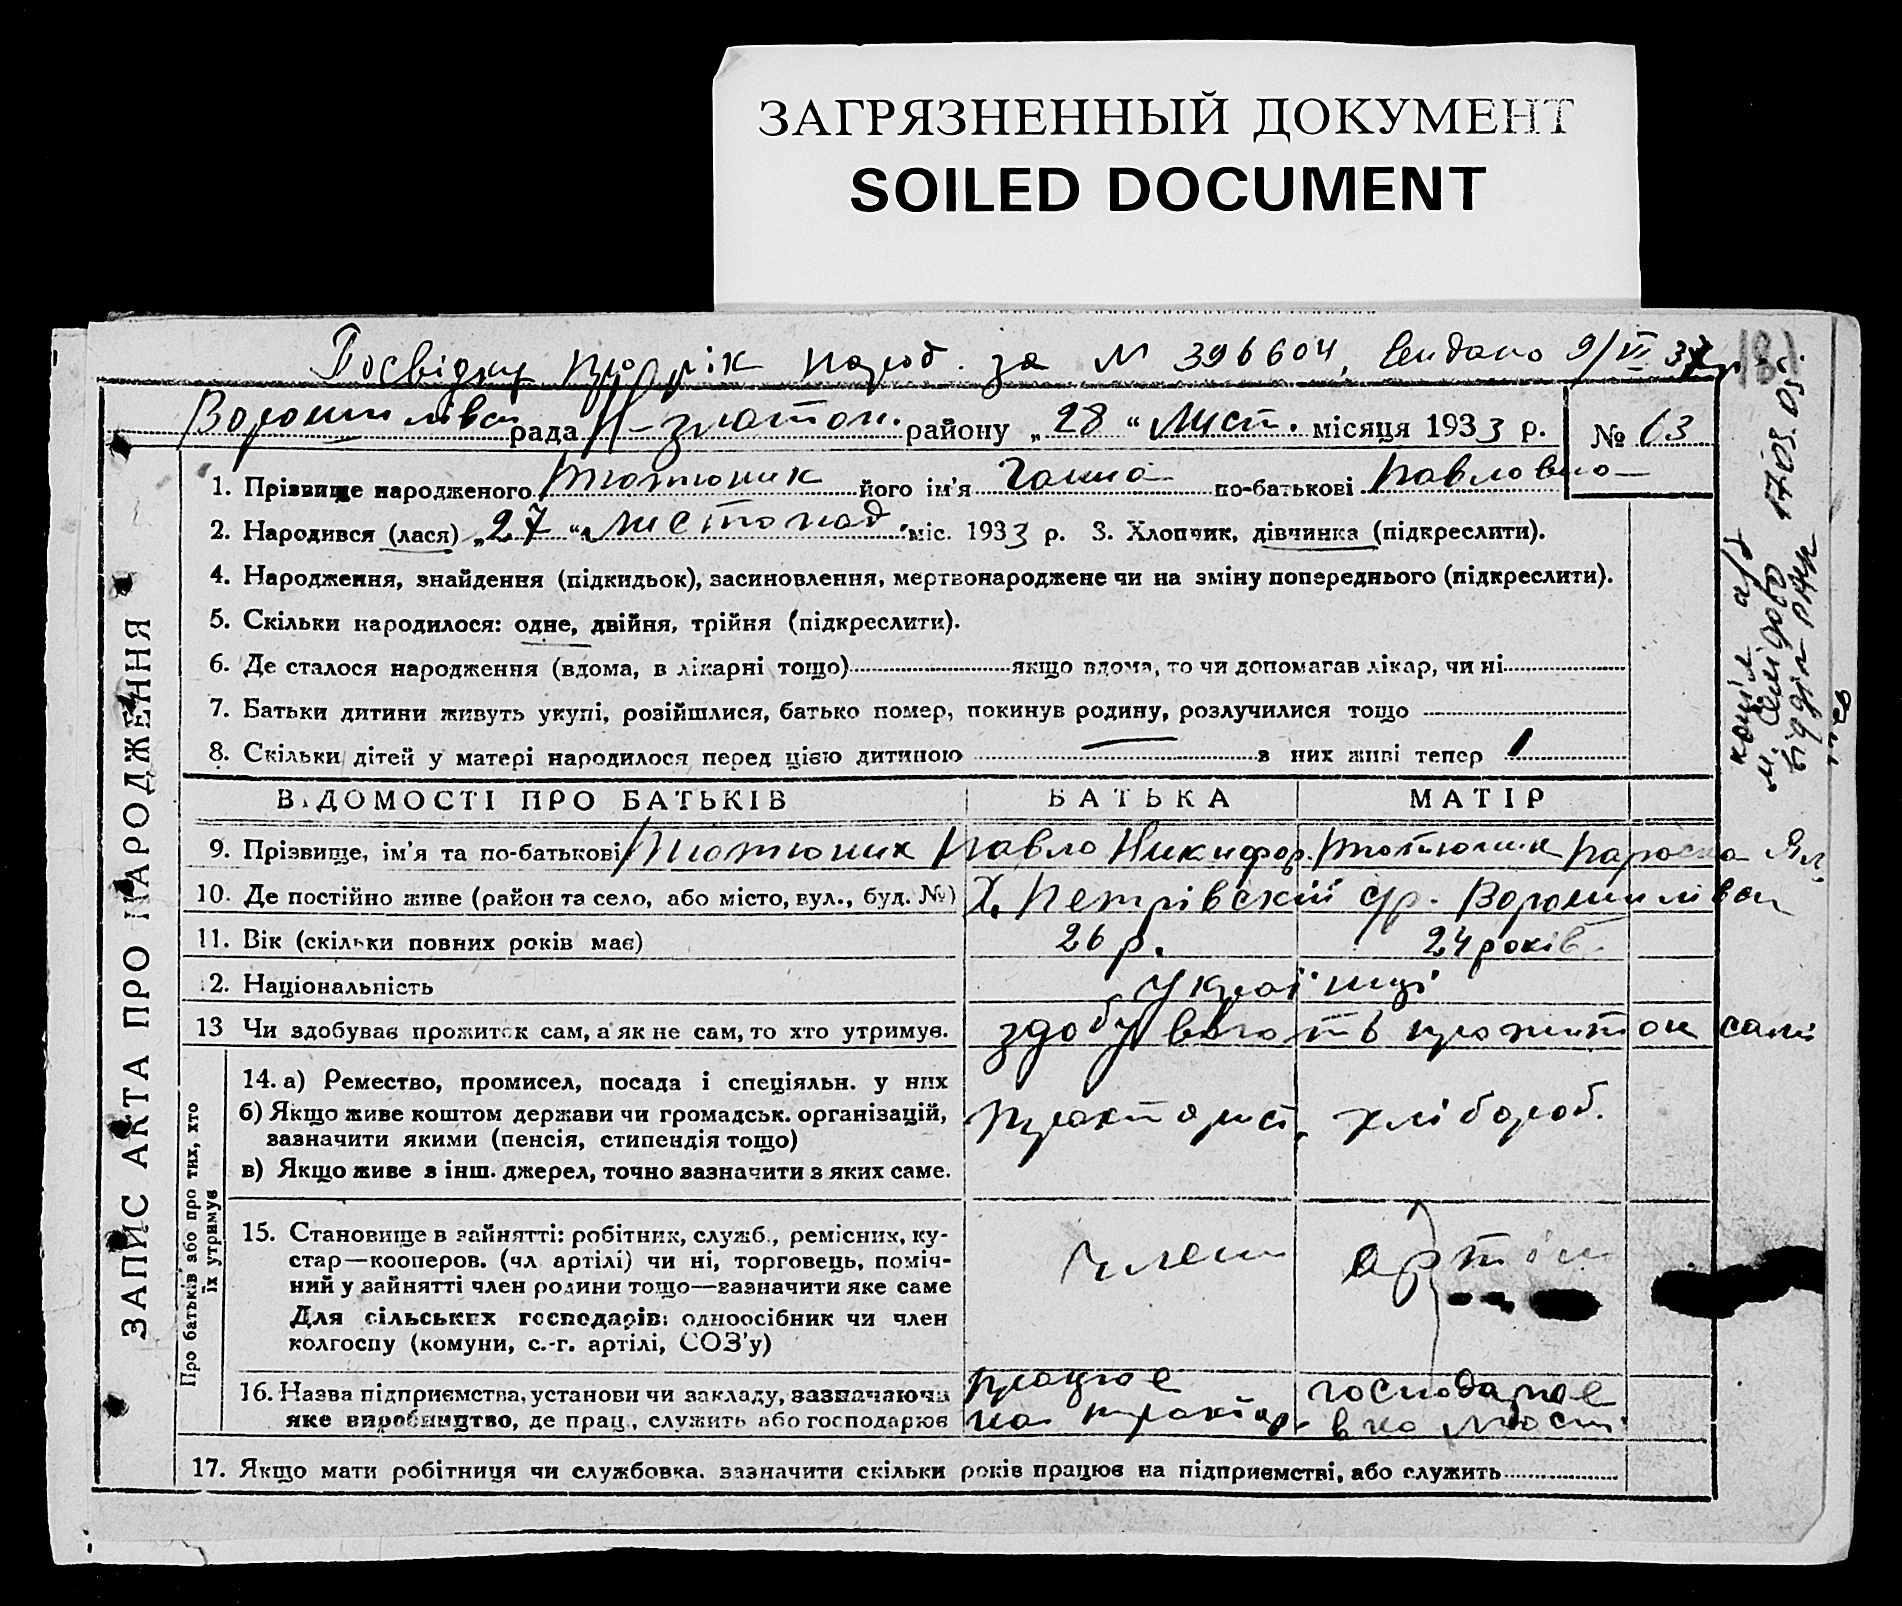 ЗАГРЯЗНЕННЫЙ ДОКУМЕНТ
SOILED DOCUMENT
Посвідку про рік народ. за № 396604, видано 9/VI 37 р.
181
Ворошилівська рада Н-златоп. району „28“ Лист. місяця 1933 р. № 63
ЗАПИС АКТА ПРО НАРОДЖЕННЯ
1. Прізвище народженого Тютюник його ім'я Ганна по-батькові Павловна
2. Народився (лася) „27“ листопад. міс. 1933 р. 3. Хлопчик, дівчинка (підкреслити).
4. Народження, знайдення (підкидьок), засиновлення, мертвонароджене чи на зміну попереднього (підкреслити).
5. Скільки народилося: одне, двійня, трійня (підкреслити).
6. Де сталося народження (вдома, в лікарні тощо) якщо вдома, то чи допомагав лікар, чи ні
7. Батьки дитини живуть укупі, розійшлися, батько помер, покинув родину, розлучилися тощо
8. Скільки дітей у матері народилося перед цією дитиною — з них живі тепер 1
ВІДОМОСТІ ПРО БАТЬКІВ БАТЬКА МАТІР
9. Прізвище, ім'я та по-батькові Тютюник Павло Никифор. Тютюник
10. Де постійно живе (район та село, або місто, вул., буд. №) Х. Петрівский с/р. Ворошилівки
11. Вік (скільки повних років має) 26 р. 24 років
12. Національність Українці
13 Чи здобуває прожиток сам, а як не сам, то хто утримує. здобувають прожиток самі
Про батьків або про тих, хто
їх утримує
14. а) Ремество, промисел, посада і спеціяльн. у них
б) Якщо живе коштом держави чи громадськ. організацій,
зазначити якими (пенсія, стипендія тощо)
тракторист, хлібороб.
в) Якщо живе з інш. джерел, точно зазначити з яких саме.
15. Становище в зайнятті: робітник, служб., ремісник, ку-
стар—кооперов. (чл артілі) чи ні, торговець, поміч-
ний у зайнятті член родини тощо—зазначити яке саме
члени артіли
Для сільських господарів: одноосібник чи член
колгоспу (комуни, с.-г. артілі, СОЗ'у)
16. Назва підприємства, установи чи закладу, зазначаючи працює господарює
яке виробництво, де прац., служить або господарює на тракторі в
17. Якщо мати робітниця чи службовка. зазначити скільки років працює на підприємстві, або служить
копія а/з
17.03.05
відділ РАЦС